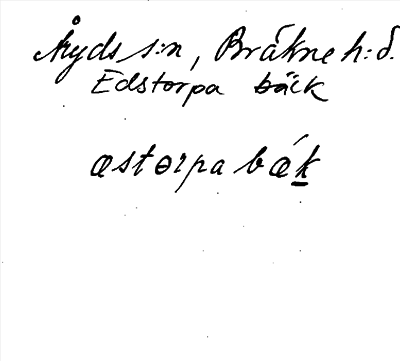 Åryds s:n, Bräkne h:d.
Edstorpa bäck
æstɵrpa bǽk̲